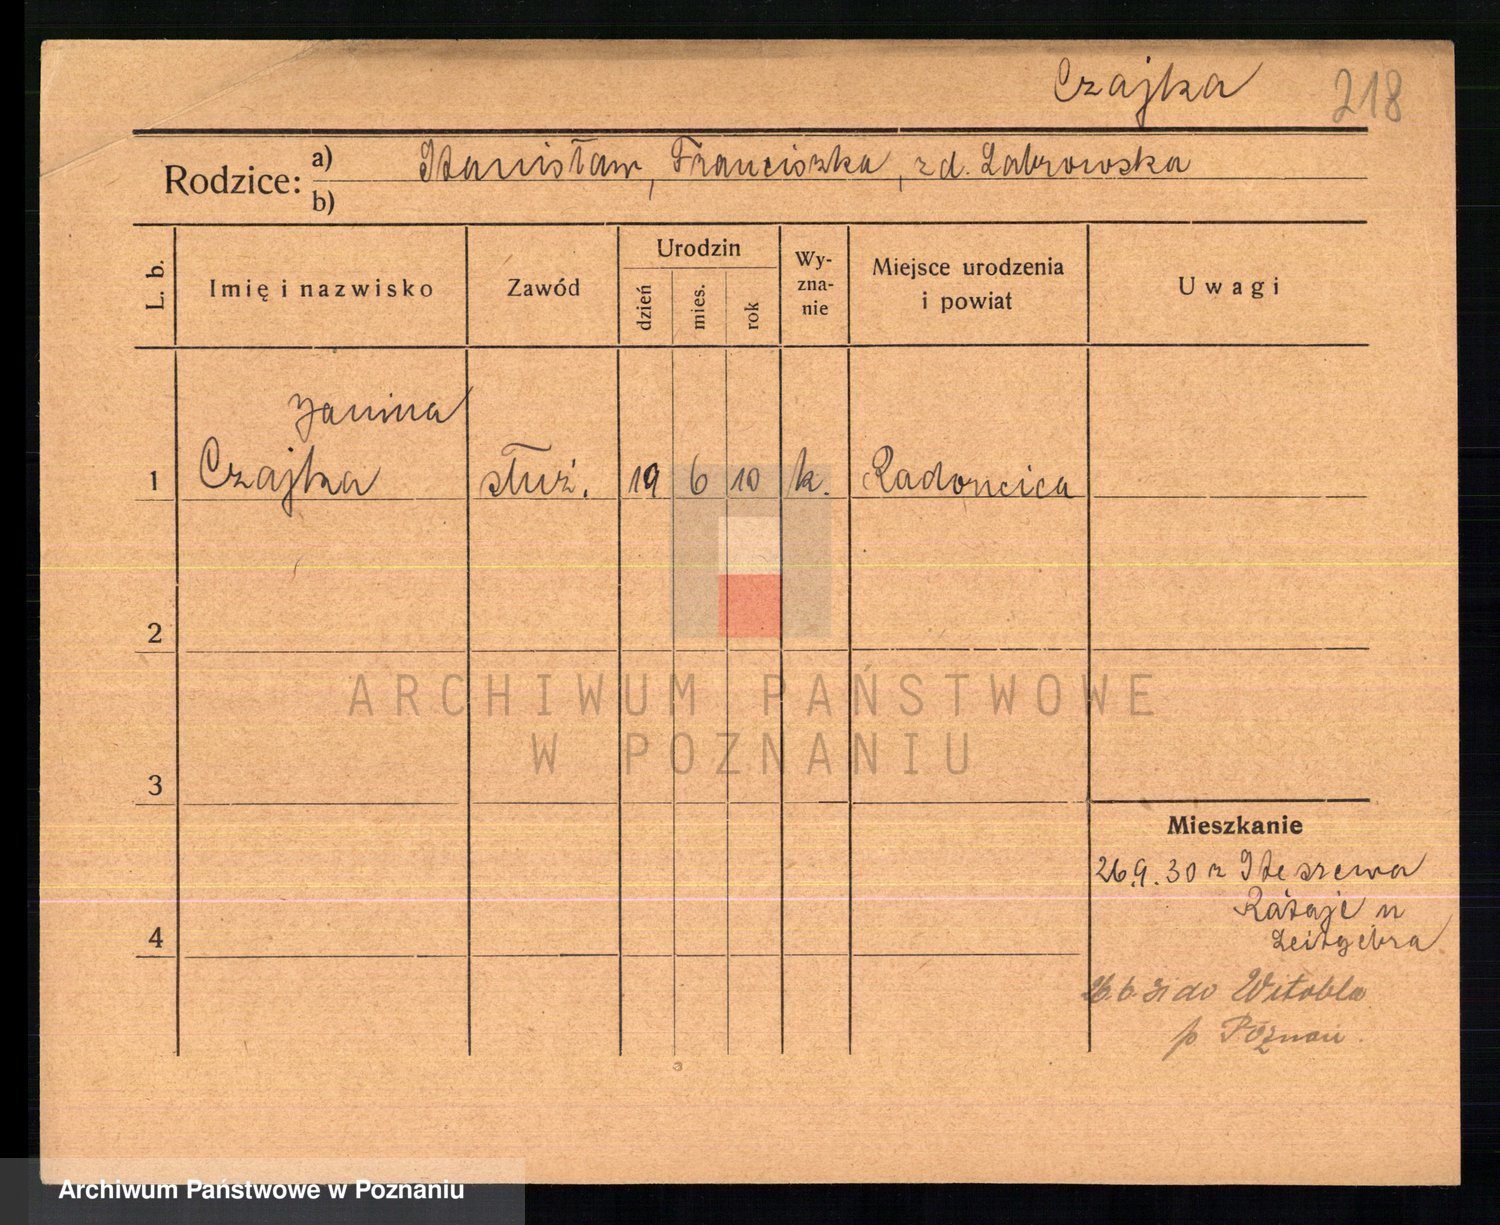 Czajka 218
Rodzice: a) Stanisław, Franciszka, zd. Labrowska
b)
L. b. Imię i nazwisko Zawód Urodzin dzień mies. rok Wy-zna-nie Miejsce urodzenia i powiat Uwagi
Janina
1 Czajka służ. 19 6 10 k. Radomcica
2
ARCHIWUM PAŃSTWOWE
W POZNANIU
3
Mieszkanie
26.9.30 z Stęszewa
Rataje u
4 Zeitgebra
26.6.31 do Witobla
p Poznań.
Archiwum Państwowe w Poznaniu